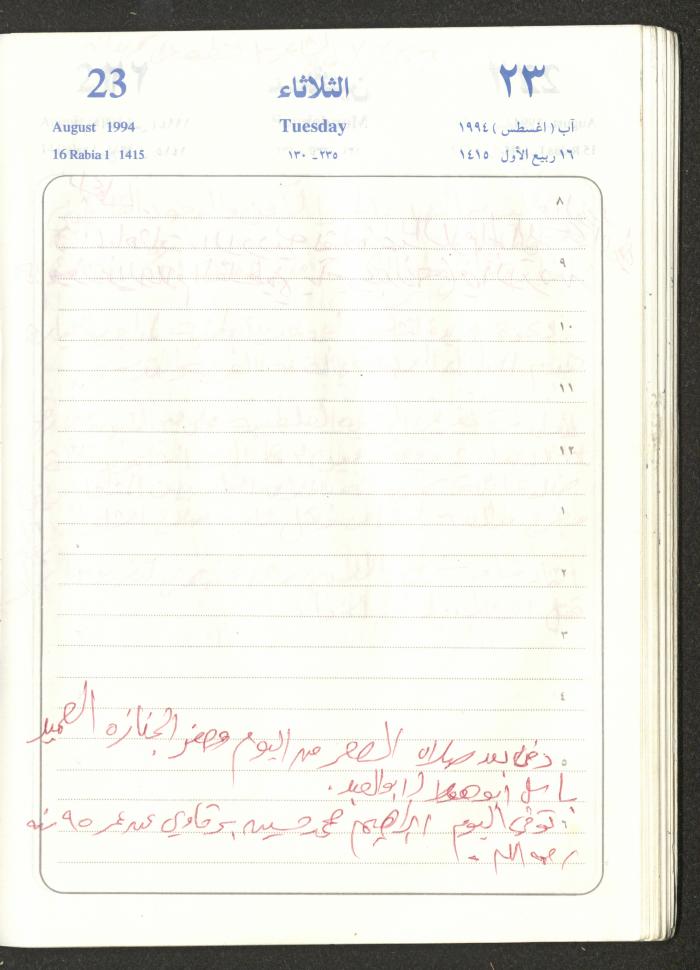 23 الثلاثاء ٢٣
August 1994 Tuesday آب (اغسطس) ١٩٩٤
16 Rabia 1 1415 ١٣٠ - ٢٣٥ ١٦ ربيع الأول ١٤١٥
٨
٩
١٠
١١
١٢
١
٢
٣
٤
دفن بعد صلاة العصر من اليوم وحضر الجنازة العميد
٥
باسل أبو
٦ توفي اليوم ابراهيم محمد حسين برقاوي عن عمر ٩٥ سنه
رحمه الله .